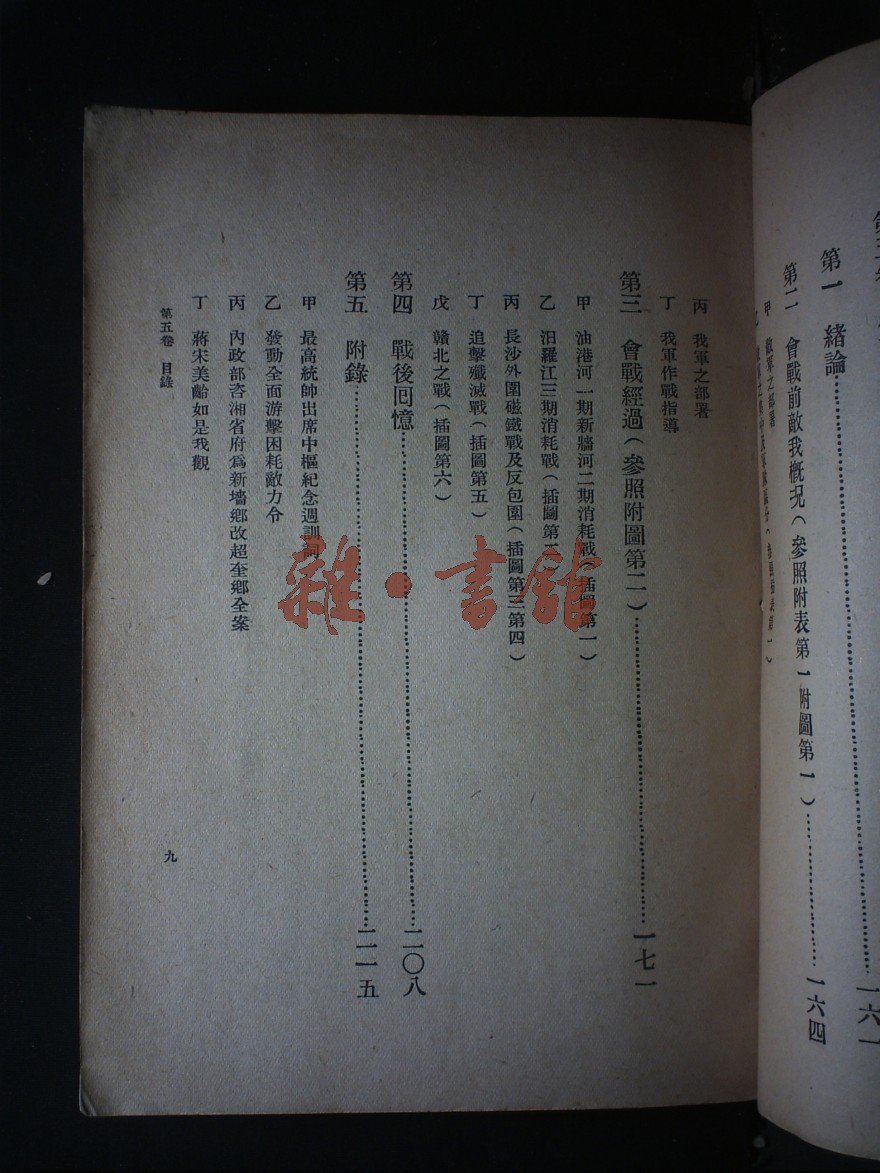 第一 緒論……一六一
第二 會戰前敵我概況（參照附表第一附圖第一）……一六四
甲 敵軍之部署
丙 我軍之部署
丁 我軍作戰指導
第三 會戰經過（參照附圖第二）……一七一
甲 油港河一期新牆河二期消耗戰（插圖第一）
乙 汨羅江三期消耗戰（插圖第二）
丙 長沙外圍磁鐵戰及反包圍（插圖第三第四）
丁 追擊殲滅戰（插圖第五）
戊 贛北之戰（插圖第六）
第四 戰後回憶……二〇八
第五 附錄……二一五
甲 最高統帥出席中樞紀念週訓詞
乙 發動全面游擊困耗敵力令
丙 內政部咨湘省府爲新墻鄉改超奎鄉全案
丁 蔣宋美齡如是我觀
第五卷 目錄
九
雜·書館